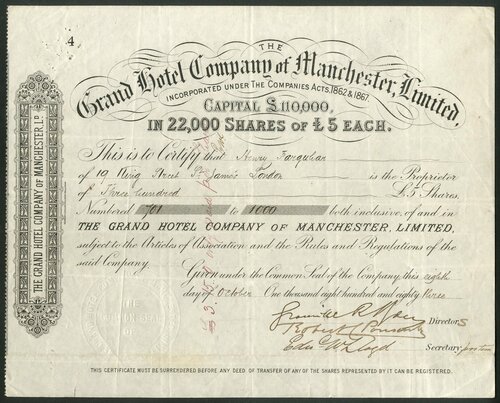 4
THE
Grand Hotel Company of Manchester, Limited,
INCORPORATED UNDER THE COMPANIES ACTS, 1862 & 1867.
CAPITAL £110,000,
IN 22,000 SHARES OF £5 EACH.
This is to Certify that Henry Farquhar
of 19 King Street St. James' London is the Proprietor
of Three hundred £5 Shares,
Numbered 701 to 1000 both inclusive, of and in
THE GRAND HOTEL COMPANY OF MANCHESTER, LIMITED,
subject to the Articles of Association and the Rules and Regulations of the
said Company.
Given under the Common Seal of the Company this eighth
day of October One thousand eight hundred and eighty three
Directors
Secretary pro tem
THIS CERTIFICATE MUST BE SURRENDERED BEFORE ANY DEED OF TRANSFER OF ANY OF THE SHARES REPRESENTED BY IT CAN BE REGISTERED.
THE GRAND HOTEL COMPANY OF MANCHESTER, LD.